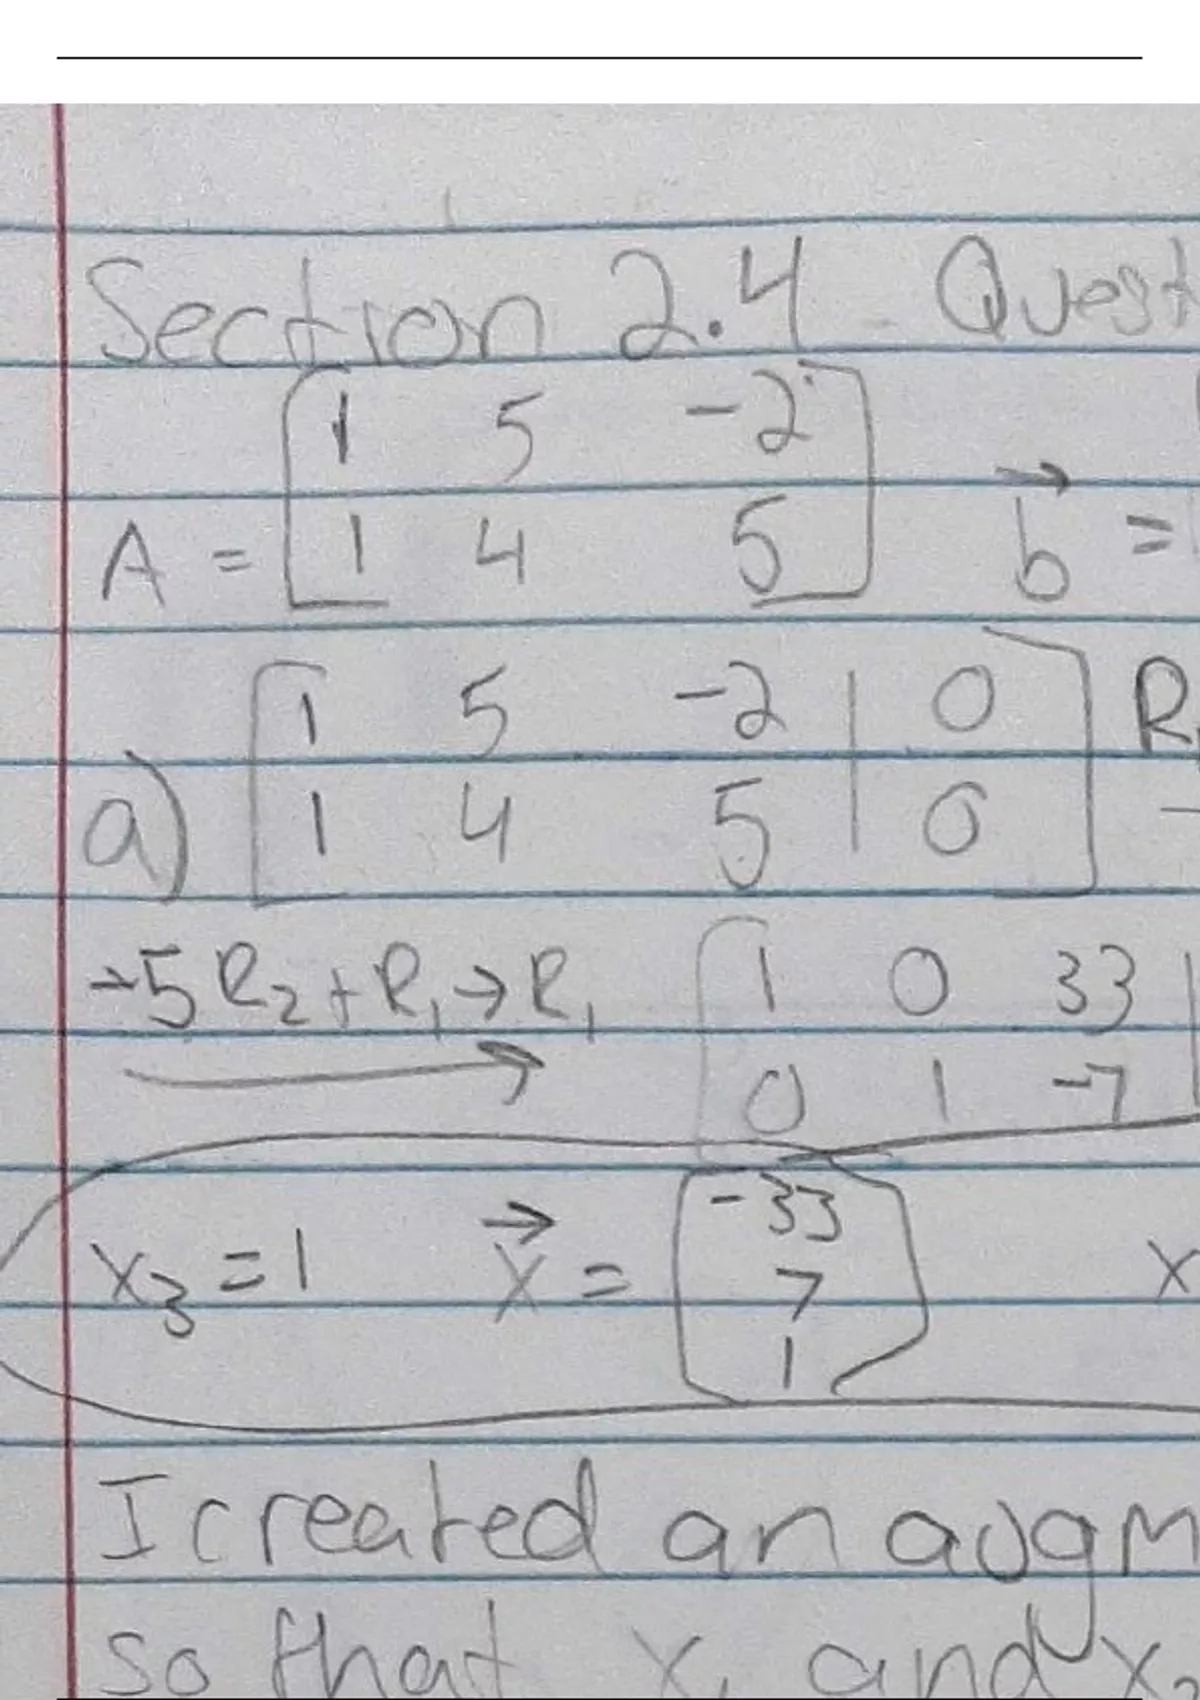 Section 2.4 - Quest
1 5 -2
A = 1 4 5 b⃗ =
1 5 -2 | 0 R
a) 1 4 5 | 0 -
-5R₂+R₁→R₁ 1 0 33 |
0 1 -7 |
-33
x₃ = 1 x⃗ = 7 x
1
I created an augm
so that x₁ and x₂